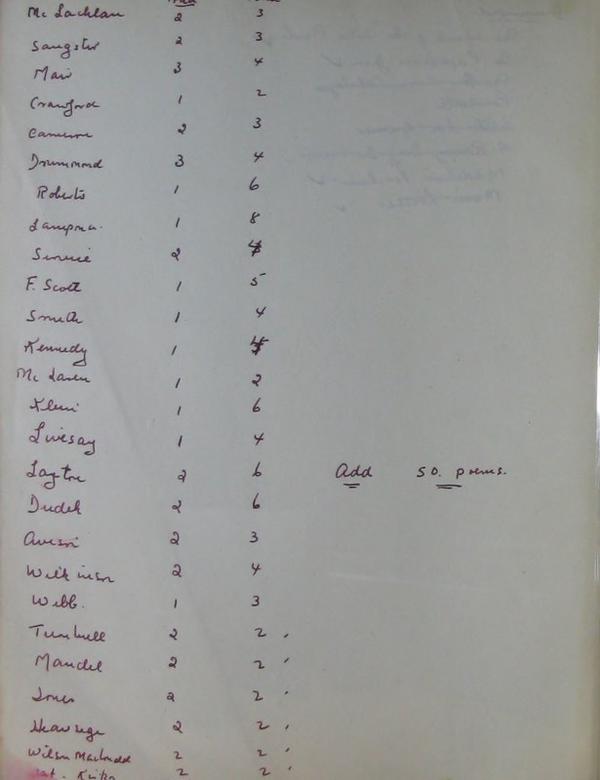 Mc Lachlan 2 3
Sangster 2 3
Mair 3 4
Crawford 1 2
Cameron 2 3
Drummond 3 4
Roberts 1 6
Lampman 1 8
Service 2
F. Scott 1 5
Smith 1 4
Kennedy 1
Mc Laren 1 2
Klein 1 6
Livesay 1 4
Layton 2 6 Add 50. poems.
Dudek 2 6
Avison 2 3
Wilkinson 2 4
Webb. 1 3
Turnbull 2 2
Mandel 2 2
Jones 2 2
Heavysege 2 2
Wilson MacDonald 2 2
2 2